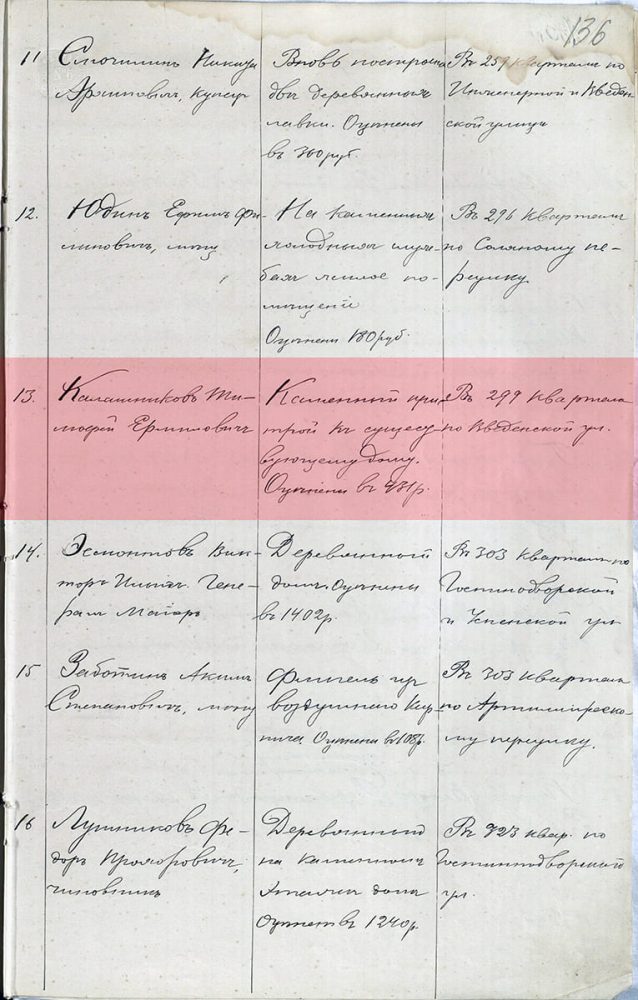 136
11
Смочилинъ Никита
Архиповичъ, купецъ
Вновь построены
двѣ деревянныя
лавки. Оцѣнены
въ 360 руб.
Въ 259 кварталѣ по
Инженерной и Введен
ской улицѣ
12.
Юдинъ Ефимъ Фи-
липовичъ, мѣщ
На каменныя
холодныя служ-
бахъ жилое по-
мѣщеніе
Оцѣнены 180 руб.
Въ 296 кварталѣ
по Соляному пе-
реулку
13.
Калашниковъ Ти-
мофей Ермиловичъ
Каменный при-
строй къ сущес
вующему дому.
Оцѣнены въ 931 р.
Въ 299 кварталѣ
по Введенской ул.
14.
Эсмонтовъ Вик-
торъ Гене-
ралъ Маіоръ
Деревянный
домъ. Оцѣнены
въ 1402 р.
Въ 303 кварталѣ по
Гостинодворской
и Успенской ул
15
Заботинъ Акимъ
Степановичъ, мѣщ
Флигель изъ
воздушнаго кир-
пича. Оцѣнены въ 108 р.
Въ 303 кварталѣ
по Артиллерійско-
му переулку.
16
Лушниковъ Фе-
доръ Прохоровичъ,
чиновникъ
Деревянный
на каменномъ
этажѣ домъ
Оцѣненъ въ 1240 р.
Въ 323 квар. по
Гостиннодворской
ул.